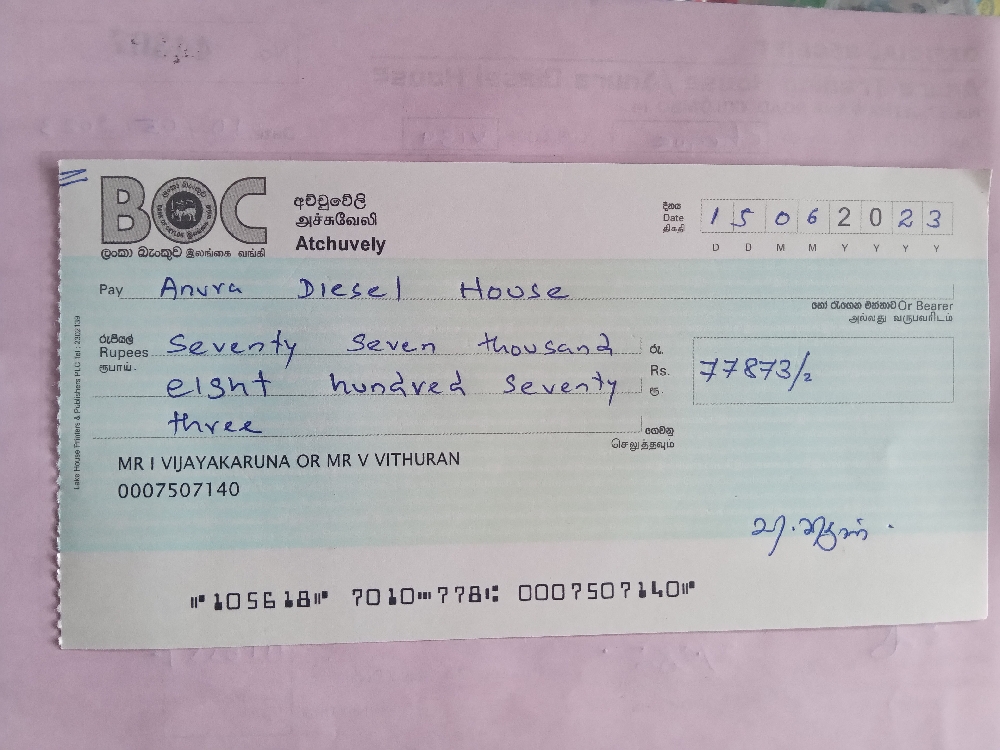 BOC
ලංකා බැංකුව இலங்கை வங்கி
අච්චුවේලි
அச்சுவேலி
Atchuvely
දිනය
Date
திகதி
15062023
D D M M Y Y Y Y
Pay Anura Diesel House
හෝ රැගෙන එන්නාට Or Bearer
அல்லது வருபவரிடம்
රුපියල්
Rupees
ரூபாய்
Seventy Seven thousand
eight hundred seventy
three
රු.
Rs.
ரூ.
77873/=
ගෙවනු
செலுத்தவும்
MR I VIJAYAKARUNA OR MR V VITHURAN
0007507140
Lake House Printers & Publishers PLC Tel : 2302139
⑈105618⑈ 7010⑉778⑆ 0007507140⑈